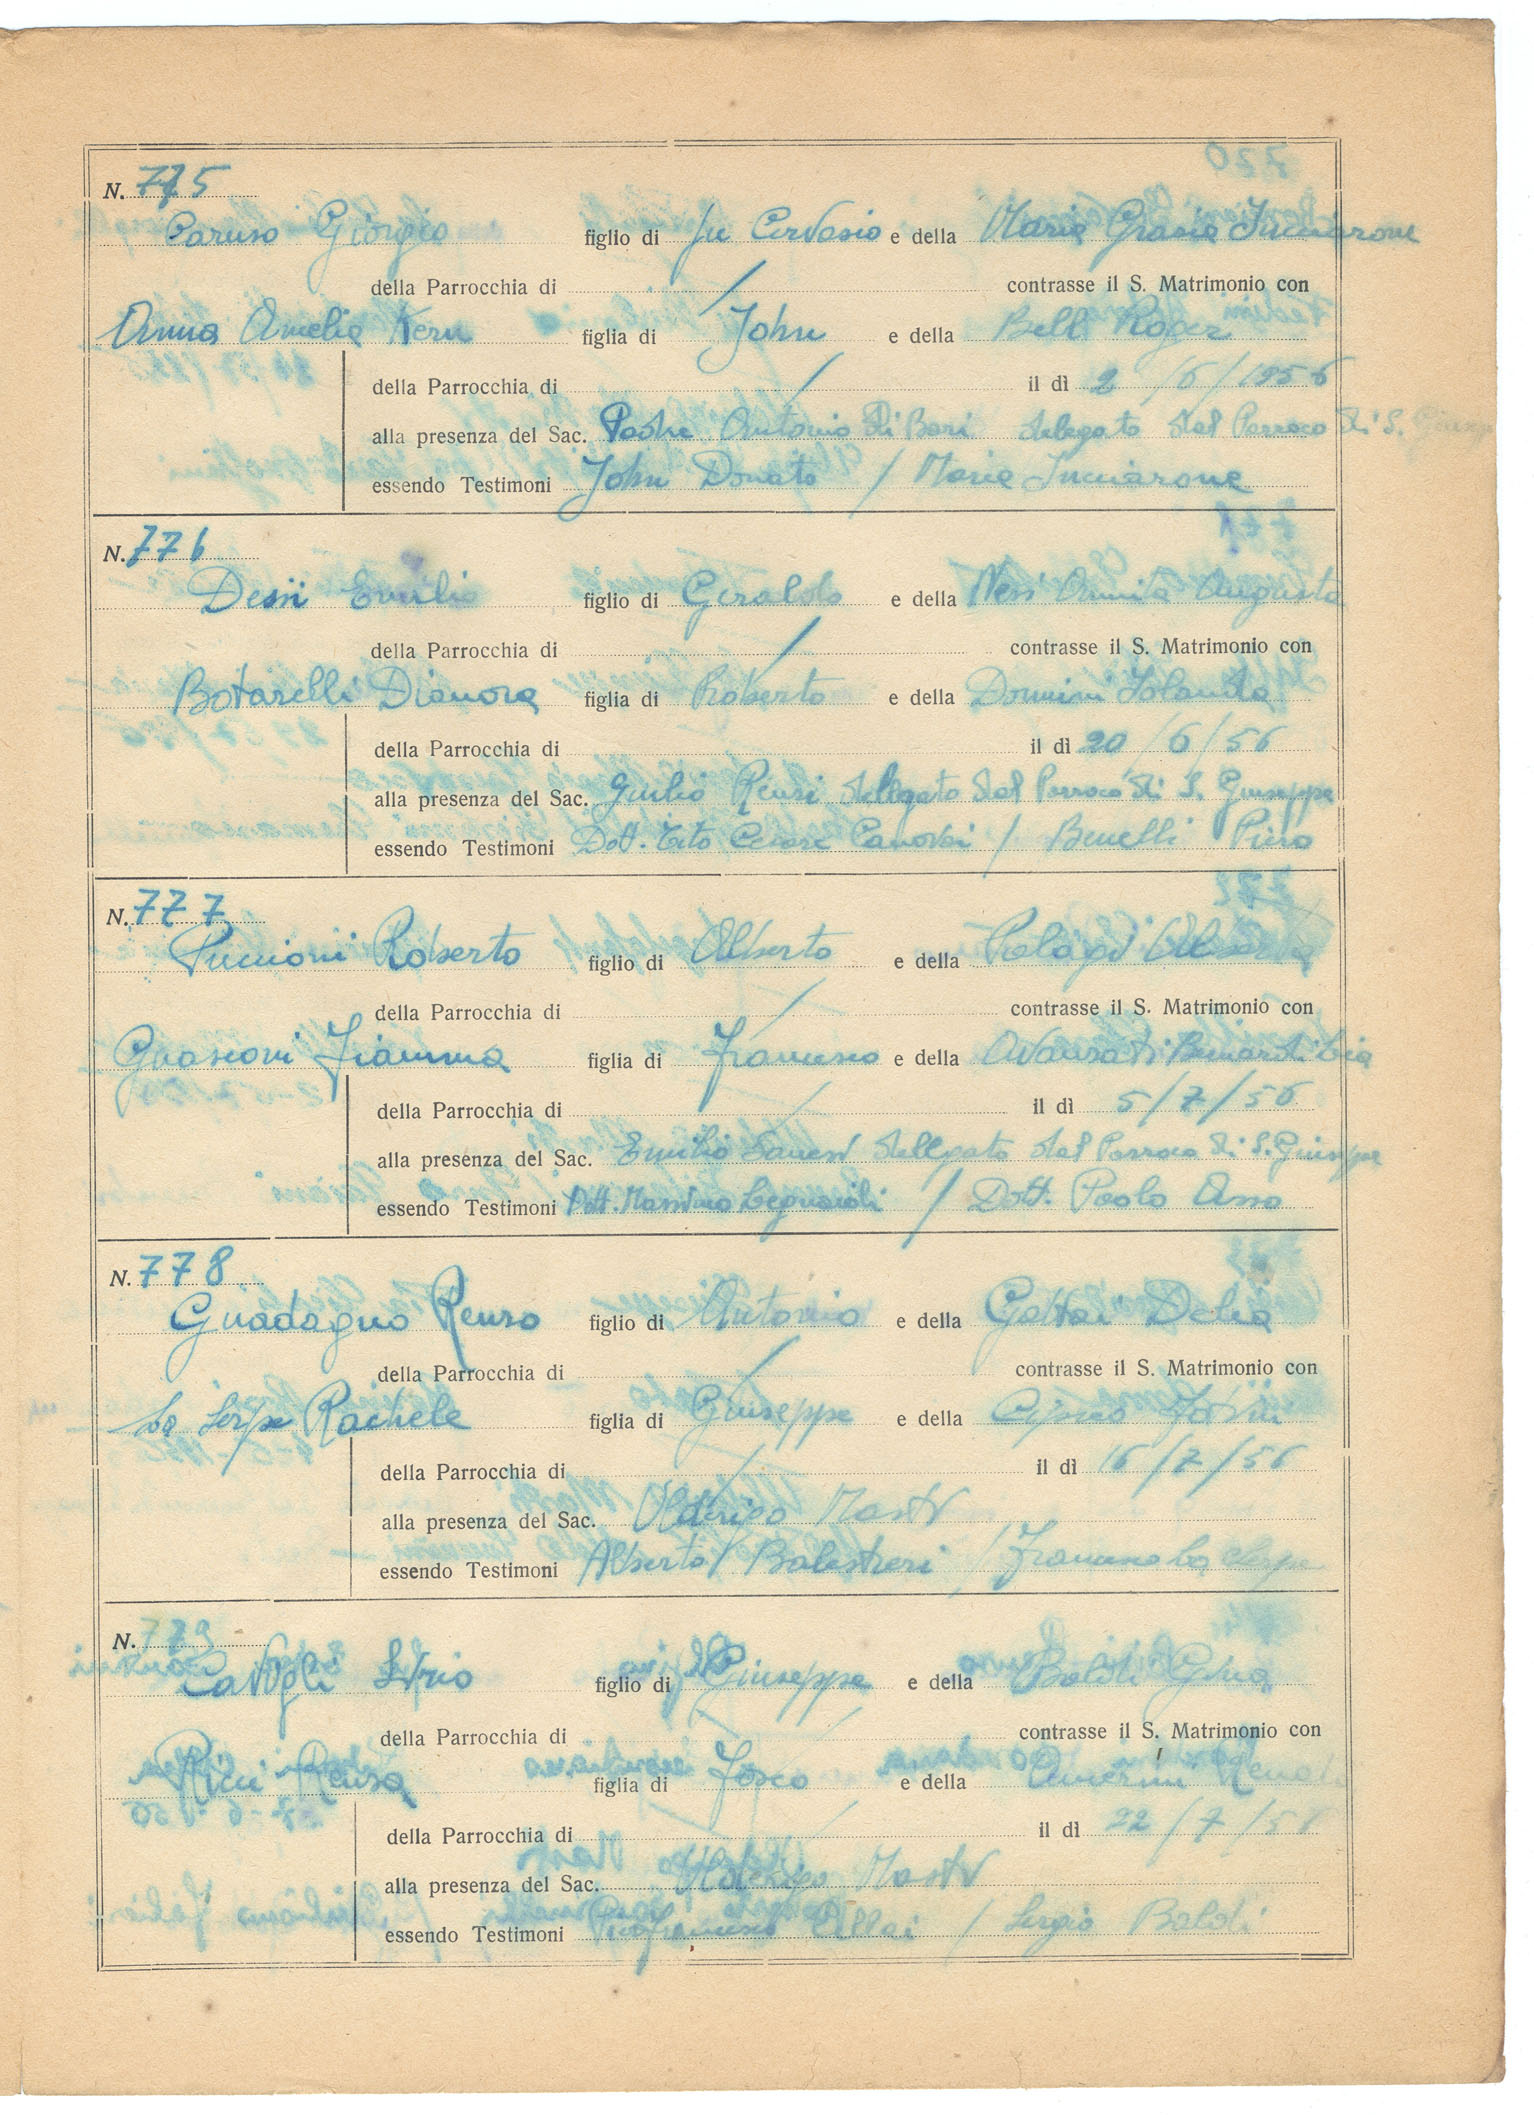 N. 775
Caruso Giorgio figlio di fu Cervasio e della Maria Grazia Incciarone
della Parrocchia di / contrasse il S. Matrimonio con
Anna Amelia Kern figlia di John e della Bell Roger
della Parrocchia di / il dì 2/6/1956
alla presenza del Sac. Padre Antonio Di Bari delegato dal Parroco di S. Giuseppe
essendo Testimoni John Donato / Maria Incciarone
N. 776
Dessì Emilio figlio di Geraldo e della Neri Annita Augusta
della Parrocchia di / contrasse il S. Matrimonio con
Botarelli Dianora figlia di Roberto e della Donnini Iolanda
della Parrocchia di il dì 20/6/56
alla presenza del Sac. Giulio Renzi delegato dal Parroco di S. Giuseppe
essendo Testimoni Dott. Tito Cesare Canovai / Benelli Piero
N. 777
Puccioni Roberto figlio di Alberto e della Palagi
della Parrocchia di / contrasse il S. Matrimonio con
Guasconi Fiamma figlia di Francesco e della Avanzati Bernardi Bia
della Parrocchia di / il dì 5/7/56
alla presenza del Sac. Emilio Sanesi delegato dal Parroco di S. Giuseppe
essendo Testimoni Dott. Massimo Legnaioli / Dott. Paolo Asso
N. 778
Guadagno Renzo figlio di Antonio e della Gattai Delia
della Parrocchia di / contrasse il S. Matrimonio con
La Serpe Rachele figlia di Giuseppe e della
della Parrocchia di / il dì 16/7/56
alla presenza del Sac. Ulderigo Masti
essendo Testimoni Alberto Balestreri / Francesco La Serpe
N. 779
Cavogli Livio figlio di Giuseppe e della Baldi Gina
della Parrocchia di / contrasse il S. Matrimonio con
Ricci Renza figlia di Fosco e della Amerini
della Parrocchia di / il dì 22/7/56
alla presenza del Sac. Ulderigo Masti
essendo Testimoni Pierfrancesco Pillai / Sergio Baldi